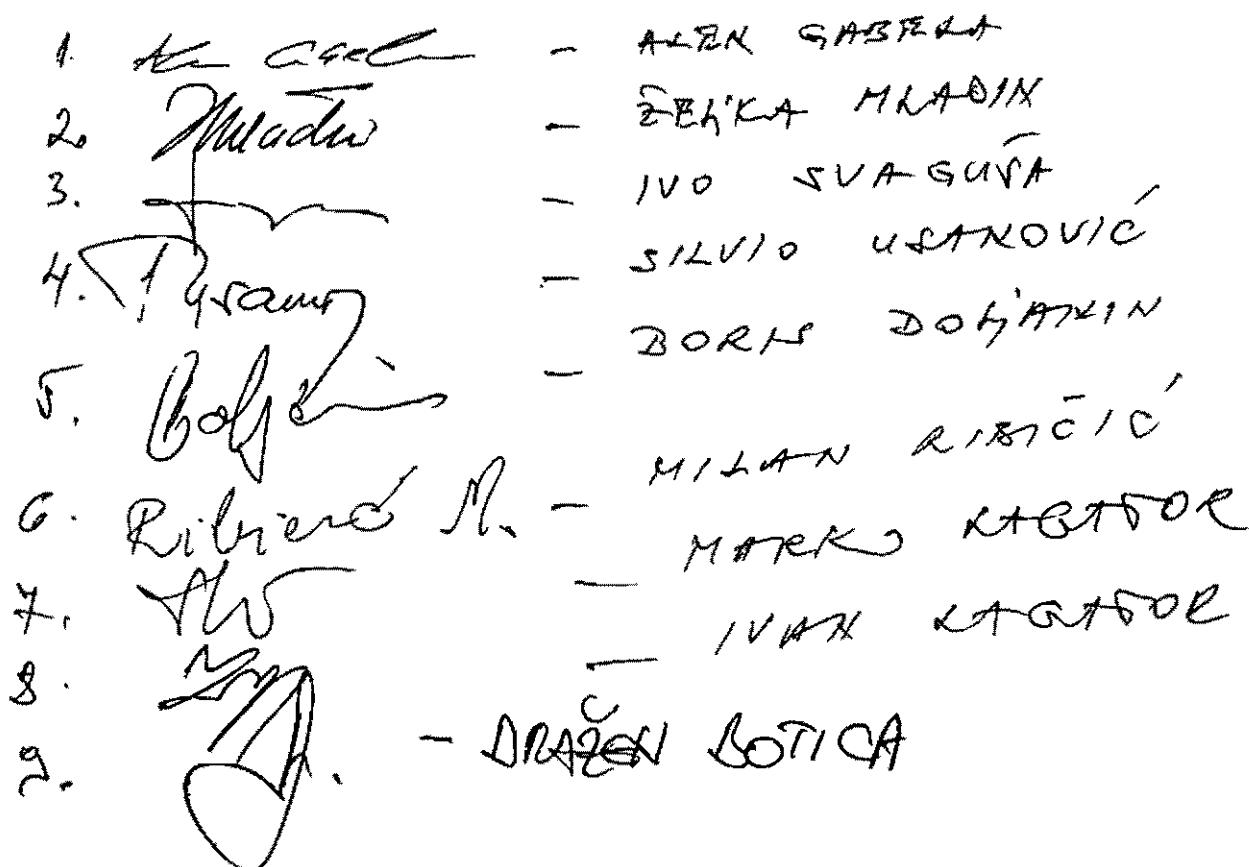 1. - ALEN GABELA
2. Mladin - ŽELJKA MLADIN
3. - IVO SVAGUŠA
4. - SILVIO USANOVIĆ
5. - BORIS DOLJANIN
6. Ribičić M. - MILAN RIBIČIĆ
7. - MARKO LAGATOR
8. - IVAN LAGATOR
9. - DRAŽEN BOTICA